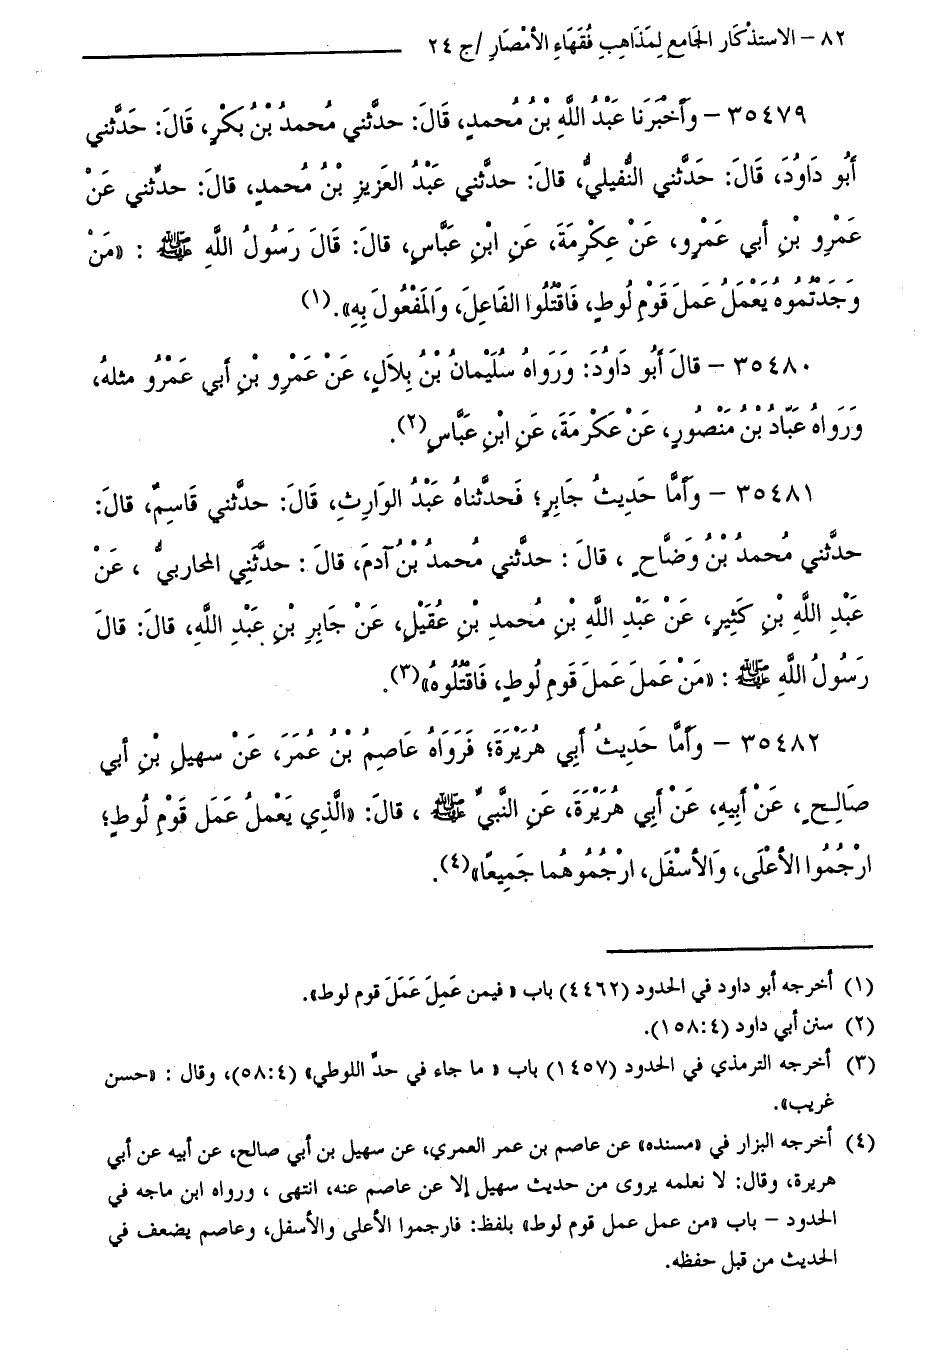 ٨٢ – الاستذْكَار الجَامع لِمَذَاهِبِ فُقَهَاءِ الأمْصَارِ /ج ٢٤
٣٥٤٧٩ – وَأَخْبَرَنَا عَبْدُ اللَّهِ بْنُ مُحمدٍ، قَالَ: حدثَّني مُحمدُ بْنُ بَكْرٍ، قَالَ: حَدثَّني
أَبُو دَاوُدَ، قَالَ: حَدثَّني النُّفيليُّ، قالَ: حدثَّني عَبْدُ العَزيزِ بْنُ مُحمدٍ، قالَ: حدثَّني عَنْ
عَمْرِو بْنِ أَبي عَمْرٍو، عَنْ عِكْرِمَةَ، عَنِ ابْنِ عَبَّاسٍ، قالَ: قَالَ رَسُولُ اللَّهِ ﷺ : «مَنْ
وَجَدْتُمُوهُ يَعْمَلُ عَمَلَ قَوْمِ لُوطٍ، فَاقْتُلُوا الفَاعِلَ، وَالمَفْعُولَ بِهِ».(١)
٣٥٤٨٠ – قالَ أَبُو دَاوُدَ: وَرَوَاهُ سُلَيْمانُ بْنُ بِلاَلٍ، عَنْ عَمْرِو بْنِ أَبي عَمْرٍو مثلهُ،
وَرَوَاهُ عَبَّادُ بْنُ مَنْصُورٍ، عَنْ عَكْرِمَةَ، عَنِ ابْنِ عَبَّاسٍ(٢).
٣٥٤٨١ – وَأَمَّا حَدِيثُ جَابِرٍ؛ فَحدثَّناهُ عَبْدُ الوَارِثِ، قَالَ: حدثَّني قَاسِمٌ، قالَ:
حدثَّني مُحمدُ بْنُ وَضَّاحٍ ، قالَ : حدثَّني مُحمدُ بْنُ آدمَ، قالَ : حدَّثَنِي المحاربيُّ ، عَنْ
عَبْدِ اللَّهِ بْنِ كَثِيرٍ، عَنْ عَبْدِ اللَّهِ بْنِ مُحمدِ بْنِ عُقَيْلٍ، عَنْ جَابِرِ بْنِ عَبْدِ اللَّهِ، قالَ: قالَ
رَسُولُ اللَّهِ ﷺ : «مَنْ عَمَلَ عَمَلَ قَومِ لُوطٍ، فَاقْتُلُوهُ»(٣).
٣٥٤٨٢ – وَأَمَّا حَدِيثُ أَبِي هُرَيْرَةَ؛ فَرَوَاهُ عَاصِمُ بْنُ عُمَرَ، عَنْ سهيلِ بْنِ أبي
صَالِحٍ ، عَنْ أَبِيهِ، عَنْ أَبِي هُرَيْرَةَ، عَنِ النَّبيِّ ﷺ ، قالَ: «الَّذِي يَعْمَلُ عَمَل قَوْمِ لُوطٍ؛
ارْجُمُوا الأعْلَى، وَالأسْفَل، ارْجُمُوهُما جَمِيعًا»(٤).
(١) أخرجه أبو داود في الحدود (٤٤٦٢) باب « فيمن عَمِلَ عَمَلَ قوم لوط».
(٢) سنن أبي داود (١٥٨:٤).
(٣) أخرجه الترمذي في الحدود (١٤٥٧) باب « ما جاء في حدِّ اللوطي» (٥٨:٤)، وقال : «حسن
غريب».
(٤) أخرجه البزار في «مسنده» عن عاصم بن عمر العمري، عن سهيل بن أبي صالح، عن أبيه عن أبي
هريرة، وقال: لا نعلمه يروى من حديث سهيل إلا عن عاصم عنه، انتهى ، ورواه ابن ماجه في
الحدود – باب «من عمل عمل قوم لوط» بلفظ: فارجموا الأعلى والأسفل، وعاصم يضعف في
الحديث من قبل حفظه.